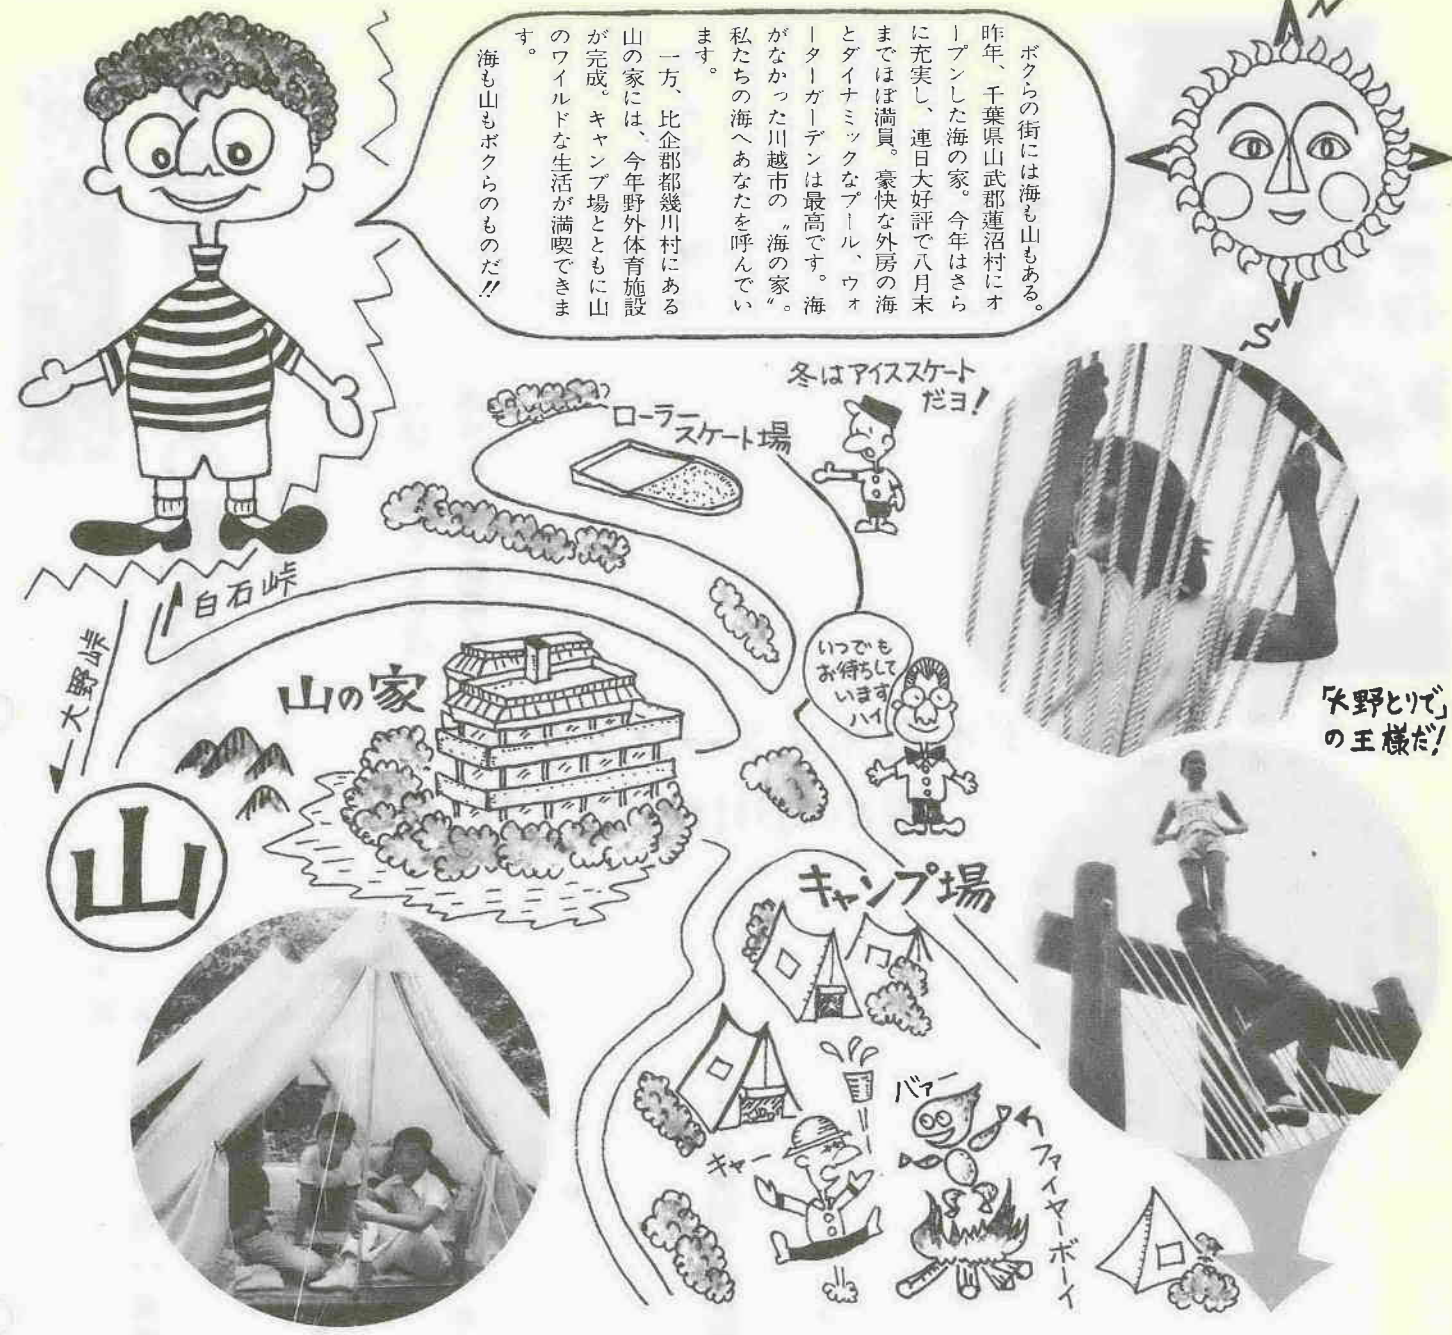 ボクらの街には海も山もある。
昨年、千葉県山武郡蓮沼村にオ
ープンした海の家。今年はさら
に充実し、連日大好評で八月末
までほぼ満員。豪快な外房の海
とダイナミックなプール、ウォ
ーターガーデンは最高です。海
がなかった川越市の〝海の家〟。
私たちの海へあなたを呼んでい
ます。
一方、比企郡都幾川村にある
山の家には、今年野外体育施設
が完成。キャンプ場とともに山
のワイルドな生活が満喫できま
す。
海も山もボクらのものだ!!
N
S
冬はアイススケート
だヨ!
ローラー
スケート場
白石峠
大野峠
山の家
いつでも
お待ちして
います
ハイ
「大野とりで」
の王様だ!
山
キャンプ場
バァー
キャー
ファイヤーボーイ